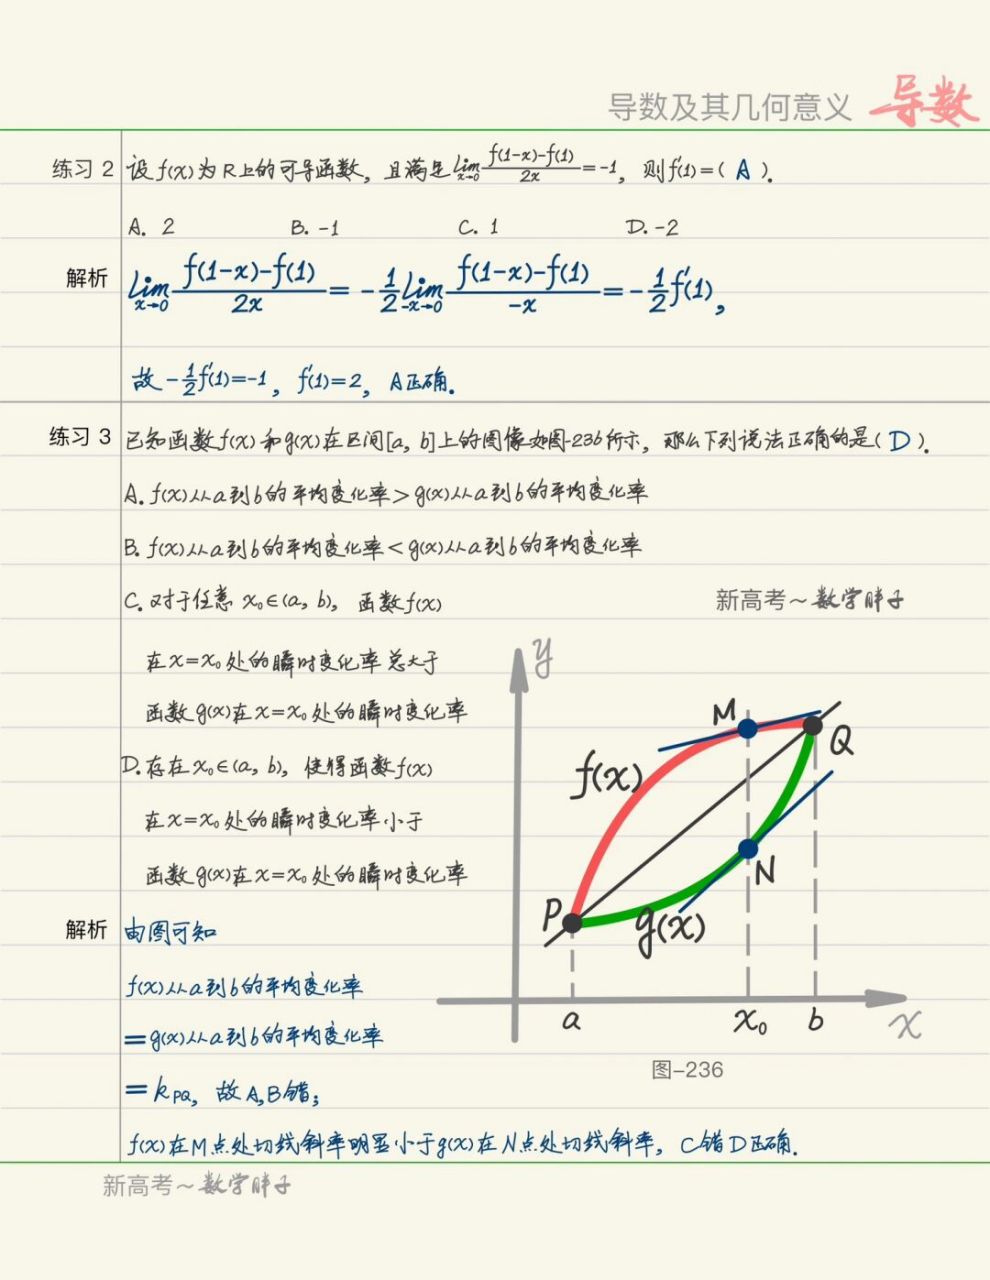 导数及其几何意义 导数
练习 2 设 f(x) 为 R 上的可导函数，且满足 lim_{x→0} (f(1-x)-f(1))/2x = -1，则 f'(1)=( A ).
A. 2 B. -1 C. 1 D. -2
解析 lim_{x→0} (f(1-x)-f(1))/2x = -1/2 lim_{-x→0} (f(1-x)-f(1))/-x = -1/2 f'(1)，
故 -1/2 f'(1)=-1，f'(1)=2，A正确.
练习 3 已知函数 f(x) 和 g(x) 在区间[a, b]上的图像如图-236所示，那么下列说法正确的是( D ).
A. f(x)从a到b的平均变化率 > g(x)从a到b的平均变化率
B. f(x)从a到b的平均变化率 < g(x)从a到b的平均变化率
C. 对于任意 x₀∈(a, b)，函数 f(x)
在 x=x₀ 处的瞬时变化率总大于
函数 g(x) 在 x=x₀ 处的瞬时变化率
D. 存在 x₀∈(a, b)，使得函数 f(x)
在 x=x₀ 处的瞬时变化率小于
函数 g(x) 在 x=x₀ 处的瞬时变化率
新高考～数学胖子
y
M
Q
f(x)
N
P
g(x)
a x₀ b x
图-236
解析 由图可知
f(x)从a到b的平均变化率
=g(x)从a到b的平均变化率
=k_{PQ}，故A,B错；
f(x)在M点处切线斜率明显小于g(x)在N点处切线斜率，C错D正确.
新高考～数学胖子